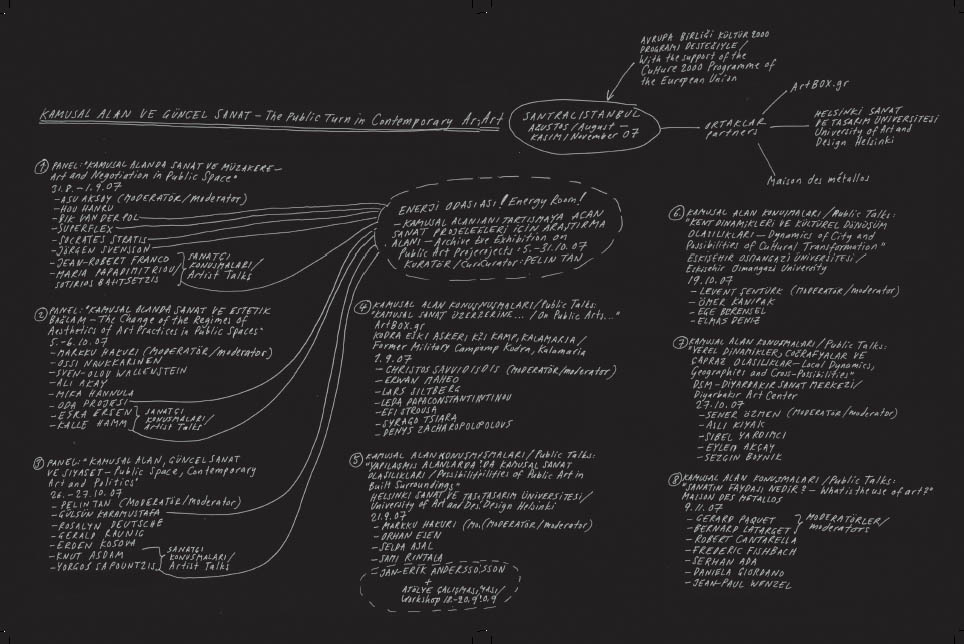 AVRUPA BİRLİĞİ KÜLTÜR 2000
PROGRAMI DESTEĞİYLE/
With the support of the
Culture 2000 Programme of
the European Union
KAMUSAL ALAN VE GÜNCEL SANAT – The Public Turn in Contemporary Ar;Art
SANTRALISTANBUL
AĞUSTOS/August –
KASIM/November 07
ORTAKLAR
partners
ArtBOX.gr
HELSİNKİ SANAT
VE TASARIM ÜNİVERSİTESİ
University of Art and
Design Helsinki
Maison des métallos
ENERJİ ODASIASI! Energy Room!
– KAMUSAL ALANIANI TARTIŞMAYA AÇAN
SANAT PROJELEKLERİ İÇİN ARAŞTIRMA
ALANI – Archive be Exhibition on
Public Art Projerojects: 5.–31.10.07
KURATÖR/CurıCurator: PELİN TAN
1 PANEL: "KAMUSAL ALANDA SANAT VE MÜZAKERE –
Art and Negotiation in Public Space"
31.8. – 1.9.07
– ASU AKSOY (MODERATÖR/moderator)
– HOU HANRU
– BIK VAN DER POL
– SUPERFLEX
– SOCRATES STRATIS
– JÖRGEN SVENSSON
– JEAN-ROBERT FRANCO
– MARIA PAPADIMITRIOU
SOTIRIOS BAHTSETZIS
SANATÇI
KONUŞMALARI/
Artist Talks
2 PANEL: "KAMUSAL ALANDA SANAT VE ESTETİK
BAĞLAM – The Change of the Regimes of
Aesthetics of Art Practices in Public Spaces"
5.–6.10.07
– MARKKU HAKURI (MODERATÖR/moderator)
– OSSI NAUKKARINEN
– SVEN-OLOV WALLENSTEIN
– ALİ AKAY
– MIKA HANNULA
– ODA PROJESİ
– ESRA ERSEN
– KALLE HAMM
SANATÇI
KONUŞMALARI/
Artist Talks
3 PANEL: "KAMUSAL ALAN, GÜNCEL SANAT
VE SİYASET – Public Space, Contemporary
Art and Politics"
26. – 27.10.07
– PELİN TAN (MODERATÖR/moderator)
– GÜLSÜN KARAMUSTAFA
– ROSALYN DEUTSCHE
– GERALD RAUNIG
– ERDEN KOSOVA
– KNUT ASDAM
– YORGOS SAPOUNTZIS
SANATÇI
KONUŞMALARI/
Artist Talks
4 KAMUSAL ALAN KONUŞMUŞMALARI/Public Talks:
"KAMUSAL SANAT ÜZERZERİNE... / On Public Arts..."
ArtBOX.gr
KODRA ESKİ ASKERİ KIŞI KAMP, KALAMARIA/
Former Military Campamp Kodra, Kalamaria
1.9.07
– CHRISTOS SAVVIDISDIS (MODERATÖR/moderator)
– ERWAN MAHEO
– LARS SILTBERG
– LEDA PAPACONSTANTINTINOU
– EFI STROUSA
– SYRAGO TSIARA
– DENYS ZACHAROPOLOPOLOUS
5 KAMUSAL ALAN KONUŞMIŞMALARI/Public Talks:
"YAPILAŞMIŞ ALANLARDA 'DA KAMUSAL SANAT
OLASILIKLARI / Possibilitibilities of Public Art in
Built Surroundings"
HELSİNKİ SANAT VE TASITASARIM ÜNİVERSİTESİ/
University of Art and Des, Design Helsinki
21.9.07
– MARKKU HAKURI (Mo,(MODERATÖR/moderator)
– ORHAN ESEN
– SELDA ASAL
– SAMI RINTALA
– JAN-ERIK ANDERSSOISSON
+
ATÖLYE ÇALIŞMAS,MASI/
Workshop 18.–20.9!0.9
6 KAMUSAL ALAN KONUŞMALARI/Public Talks:
"KENT DİNAMİKLERİ VE KÜLTÜREL DÖNÜŞÜM
OLASILIKLARI – Dynamics of City and
Possibilities of Cultural Transformation"
ESKİŞEHİR OSMANGAZİ ÜNİVERSİTESİ/
Eskisehir Osmangazi University
19.10.07
– LEVENT ŞENTÜRK (MODERATÖR/moderator)
– ÖMER KANIPAK
– EGE BERENSEL
– ELMAS DENİZ
7 KAMUSAL ALAN KONUŞMALARI/Public Talks:
"YEREL DİNAMİKLER, COĞRAFYALAR VE
ÇAPRAZ OLASILIKLAR – Local Dynamics,
Geographies and Cross-Possibilities"
DSM – DİYARBAKIR SANAT MERKEZİ/
Diyarbakır Art Center
27.10.07
– ŞENER ÖZMEN (MODERATÖR/moderator)
– ASLI KIYAK
– SİBEL YARDIMCI
– EYLEM AKÇAY
– SEZGİN BOYNİK
8 KAMUSAL ALAN KONUŞMALARI/Public Talks:
"SANATIN FAYDASI NEDİR? – What is the use of art?"
MAISON DES METALLOS
9.11.07
– GERARD PAQUET
– BERNARD LATARGET
MODERATÖRLER/
moderators
– ROBERT CANTARELLA
– FREDERIC FISHBACH
– SERHAN ADA
– DANIELA GIORDANO
– JEAN-PAUL WENZEL